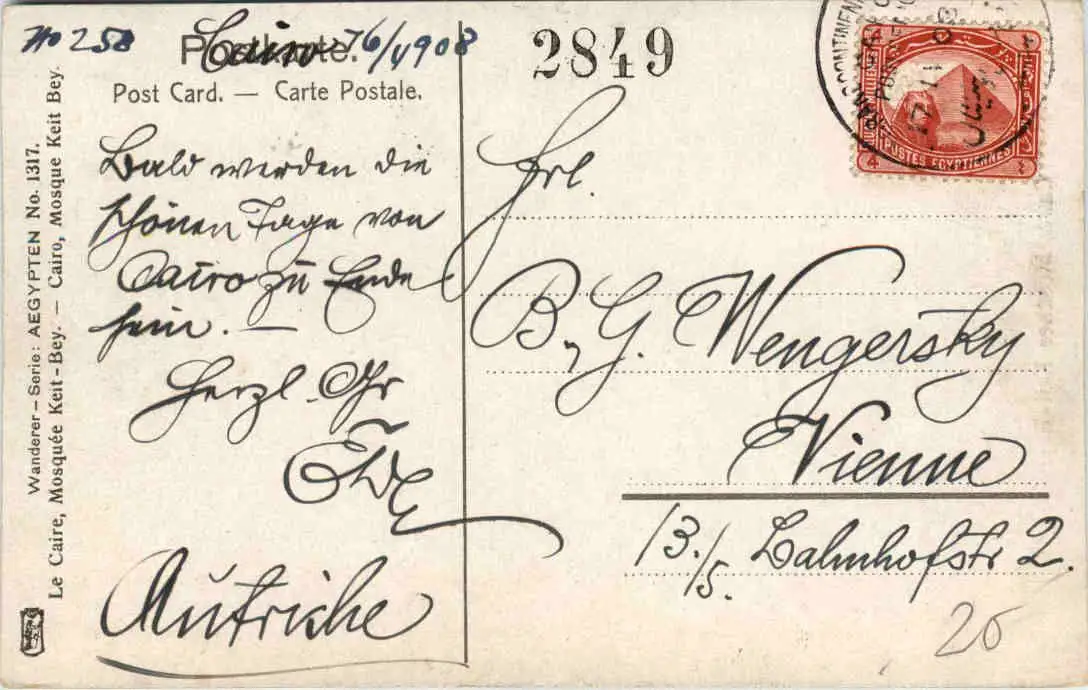 No 258
Cairo 16/1 1908
Postkarte.
Post Card. — Carte Postale.
2849
POSTES EGYPTIENNES
4
Bald werden die
schönen Tage von
Cairo zu Ende
sein. —
Herzl. Gr
Autriche
Frl.
B. G. Wengersky
Vienne
13./5. Bahnhofstr 2.
20
Wanderer – Serie: AEGYPTEN No. 1317.
Le Caire, Mosquée Keit-Bey. — Cairo, Mosque Keit Bey.